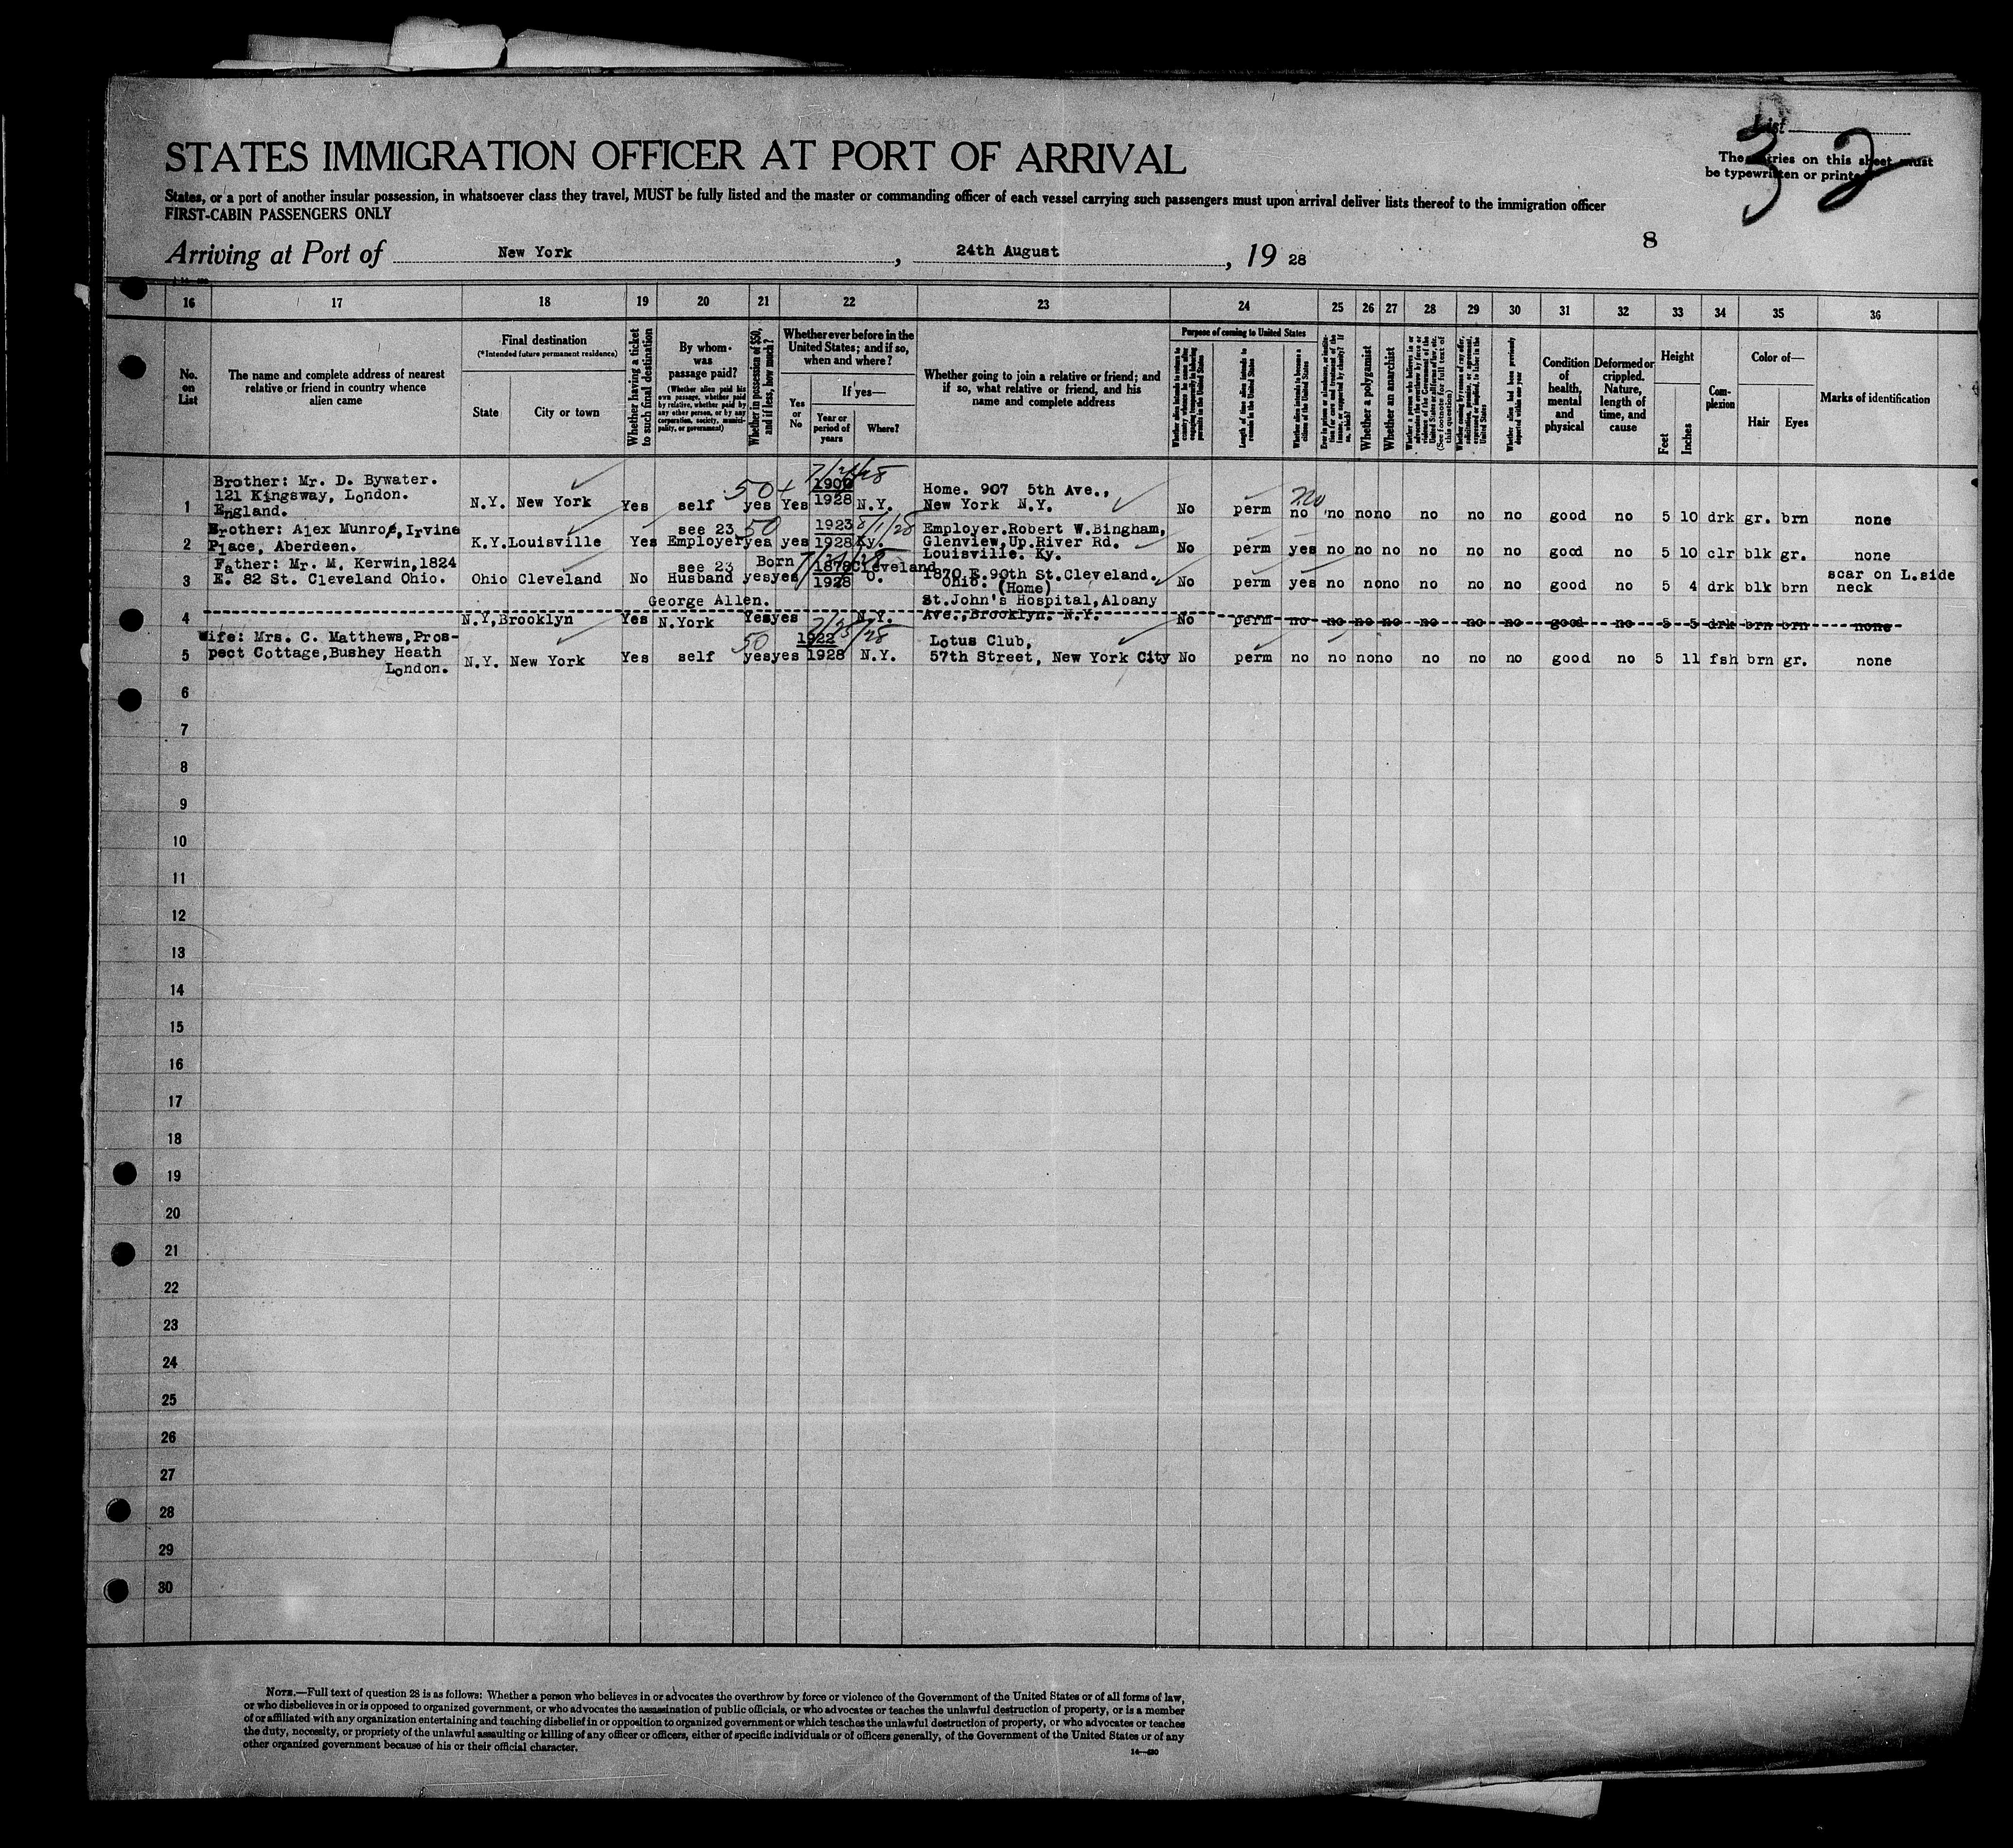 List
32
The entries on this sheet must
be typewritten or printed
STATES IMMIGRATION OFFICER AT PORT OF ARRIVAL
States, or a port of another insular possession, in whatsoever class they travel, MUST be fully listed and the master or commanding officer of each vessel carrying such passengers must upon arrival deliver lists thereof to the immigration officer
FIRST-CABIN PASSENGERS ONLY
8
Arriving at Port of New York, 24th August, 19 28
16 17 18 19 20 21 22 23 24 25 26 27 28 29 30 31 32 33 34 35 36
No. on List
The name and complete address of nearest relative or friend in country whence alien came
Final destination
(*Intended future permanent residence)
State
City or town
Whether having a ticket to such final destination
By whom was passage paid?
(Whether alien paid his own passage, whether paid by relative, whether paid by any other person, or by any corporation, society, municipality, or government)
Whether in possession of $50, and if less, how much?
Whether ever before in the United States; and if so, when and where?
Yes or No
If yes—
Year or period of years
Where?
Whether going to join a relative or friend; and if so, what relative or friend, and his name and complete address
Purpose of coming to United States
Length of time alien intends to remain in the United States
Whether alien intends to become a citizen of the United States
Whether a polygamist
Whether an anarchist
(See footnote for full text of this question)
Whether alien had been previously deported within one year
Condition of health, mental and physical
Deformed or crippled. Nature, length of time, and cause
Height
Feet
Inches
Complexion
Color of—
Hair
Eyes
Marks of identification
1 Brother: Mr. D. Bywater. 121 Kingsway, London. England. N.Y. New York Yes self 50+ yes Yes 1900 1928 N.Y. Home. 907 5th Ave., New York N.Y. No perm no no no no no no no no good no 5 10 drk gr. brn none
2 Brother: Alex Munro, Irvine Place, Aberdeen. K.Y. Louisville Yes see 23 Employer 50 yes yes 1923 1928 8/1/28 Ky. Employer. Robert W. Bingham, Glenview, Up. River Rd. Louisville. Ky. No perm yes no no no no no no good no 5 10 clr blk gr. none
3 Father: Mr. M. Kerwin, 1824 E. 82 St. Cleveland Ohio. Ohio Cleveland No see 23 Husband yes yes Born 1878 1928 Cleveland O. 1870 E. 90th St. Cleveland. Ohio. (Home) No perm yes no no no no no no good no 5 4 drk blk brn scar on L. side neck
4 N.Y, Brooklyn Yes George Allen. N.York Yes yes N.Y. St. John's Hospital, Albany Ave., Brooklyn. N.Y. No perm no no no no no no no good no 5 5 drk brn brn none
5 Wife: Mrs. C. Matthews, Prospect Cottage, Bushey Heath London. N.Y. New York Yes self 50 yes yes 1922 1928 N.Y. Lotus Club, 57th Street, New York City No perm no no no no no no no good no 5 11 fsh brn gr. none
6
7
8
9
10
11
12
13
14
15
16
17
18
19
20
21
22
23
24
25
26
27
28
29
30
NOTE.—Full text of question 28 is as follows: Whether a person who believes in or advocates the overthrow by force or violence of the Government of the United States or of all forms of law,
or who disbelieves in or is opposed to organized government, or who advocates the assassination of public officials, or who advocates or teaches the unlawful destruction of property, or is a member
of or affiliated with any organization entertaining and teaching disbelief in or opposition to organized government or which teaches the unlawful destruction of property, or who advocates or teaches
the duty, necessity, or propriety of the unlawful assaulting or killing of any officer or officers, either of specific individuals or of officers generally, of the Government of the United States or of any
other organized government because of his or their official character.
14—430